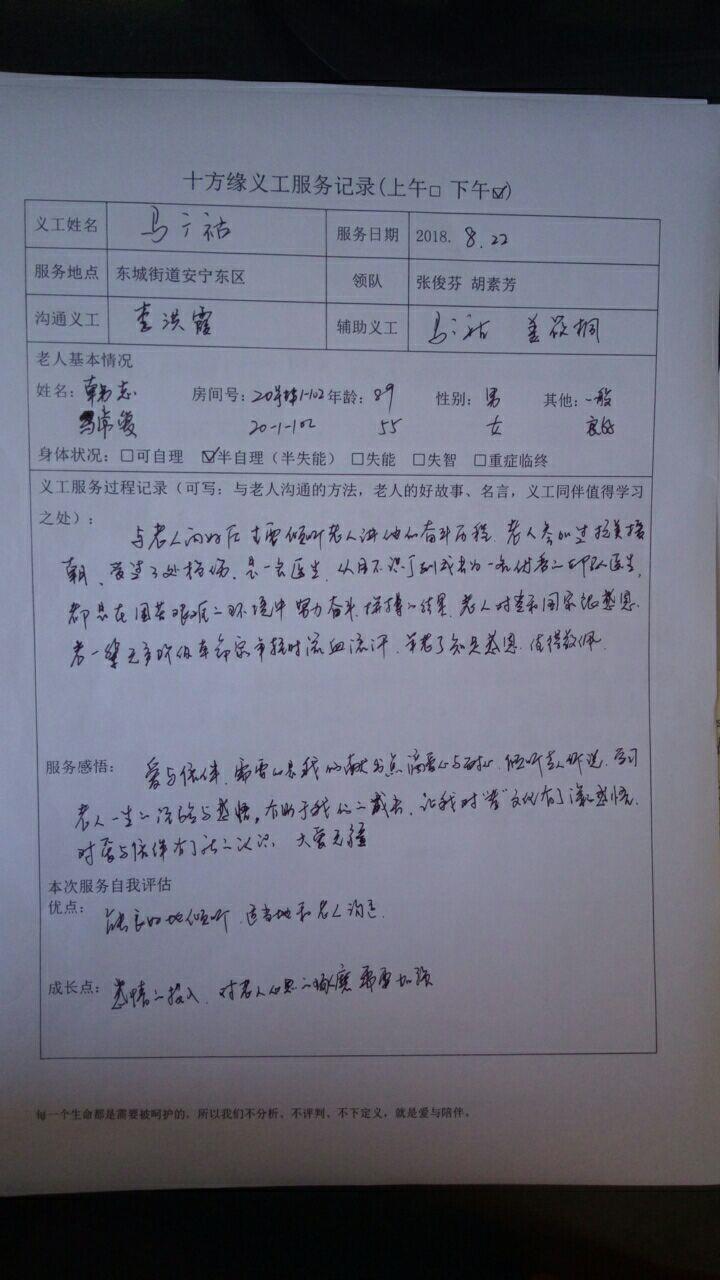 十方缘义工服务记录(上午□ 下午☑)
义工姓名 马广祜 服务日期 2018. 8.22
服务地点 东城街道安宁东区 领队 张俊芬 胡素芳
沟通义工 李洪霞 辅助义工 马广祜 姜筱桐
老人基本情况
姓名: 韩志 房间号: 20号楼1-102 年龄: 89 性别: 男 其他: 一般
20-1-102 55 女 良好
身体状况: □可自理 ☑半自理（半失能） □失能 □失智 □重症临终
义工服务过程记录（可写：与老人沟通的方法，老人的好故事、名言，义工同伴值得学习
之处）:
与老人问好后 主要倾听老人讲他的奋斗历程. 老人参加过抗美援
朝、受过3处枪伤. 是一名医生, 从目不识丁到成长为一名优秀的部队医生,
都是在困苦艰难的环境中努力奋斗、拼搏的结果. 老人对党和国家很感恩.
流血流汗. 值得敬佩.
服务感悟: 爱与陪伴, 需要的是我们献出点滴爱心与耐心, 倾听老人所说. 学习
老人一生的经验与感悟, 有助于我们的成长. 让我对"老"文化有了深的感悟.
对爱与陪伴有了新的认识. 大爱无疆
本次服务自我评估
优点: 能良好地倾听. 适当地和老人沟通.
成长点: 感情的投入. 对老人心思的琢磨需要加强
每一个生命都是需要被呵护的，所以我们不分析、不评判、不下定义，就是爱与陪伴。